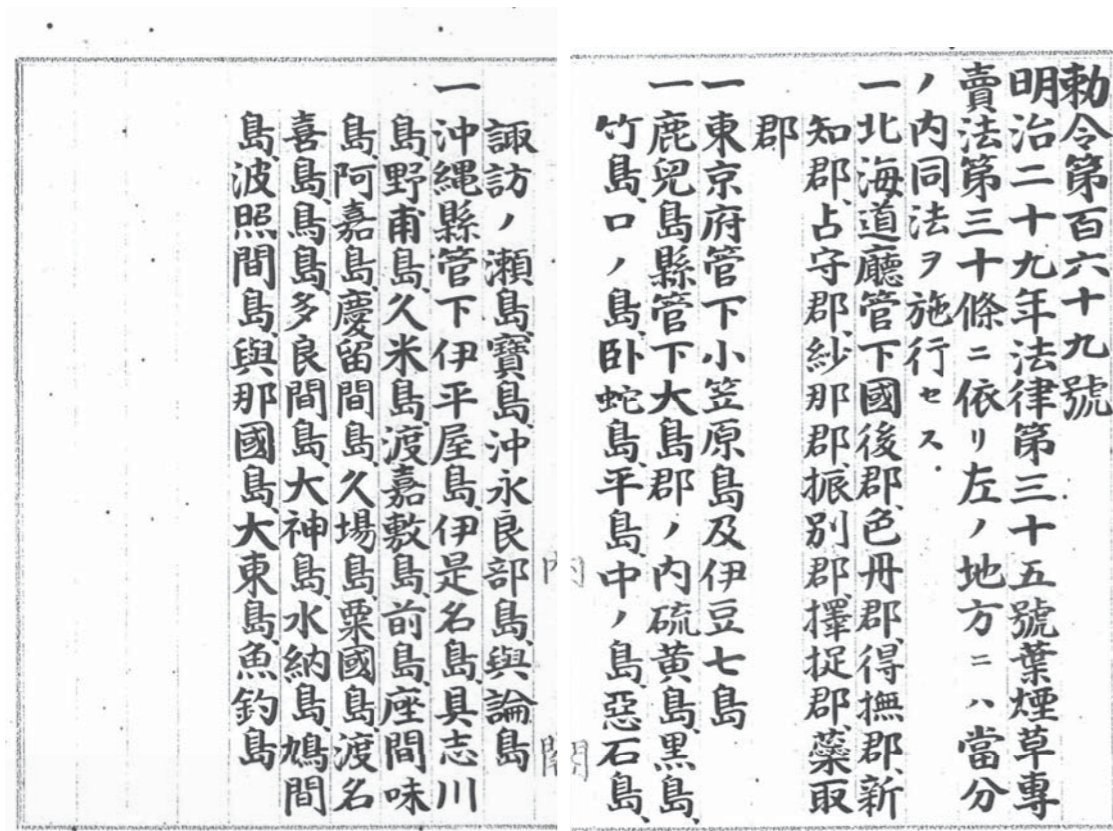 勅令第百六十九號
明治二十九年法律第三十五號葉煙草專
賣法第三十條ニ依リ左ノ地方ニハ當分
ノ內同法ヲ施行セス
一北海道廳管下國後郡、色丹郡、得撫郡、新
知郡、占守郡、紗那郡、振別郡、擇捉郡、蘂取
郡
一東京府管下小笠原島及伊豆七島
一鹿兒島縣管下大島郡ノ內硫黃島、黑島、
竹島、口ノ島、臥蛇島、平島、中ノ島、惡石島、
諏訪ノ瀬島、寶島、沖永良部島、與論島
一沖縄縣管下伊平屋島、伊是名島、具志川
島、野甫島、久米島、渡嘉敷島、前島、座間味
島、阿嘉島、慶留間島、久場島、粟國島、渡名
喜島、鳥島、多良間島、大神島、水納島、鳩間
島、波照間島、與那國島、大東島、魚釣島
內
閣